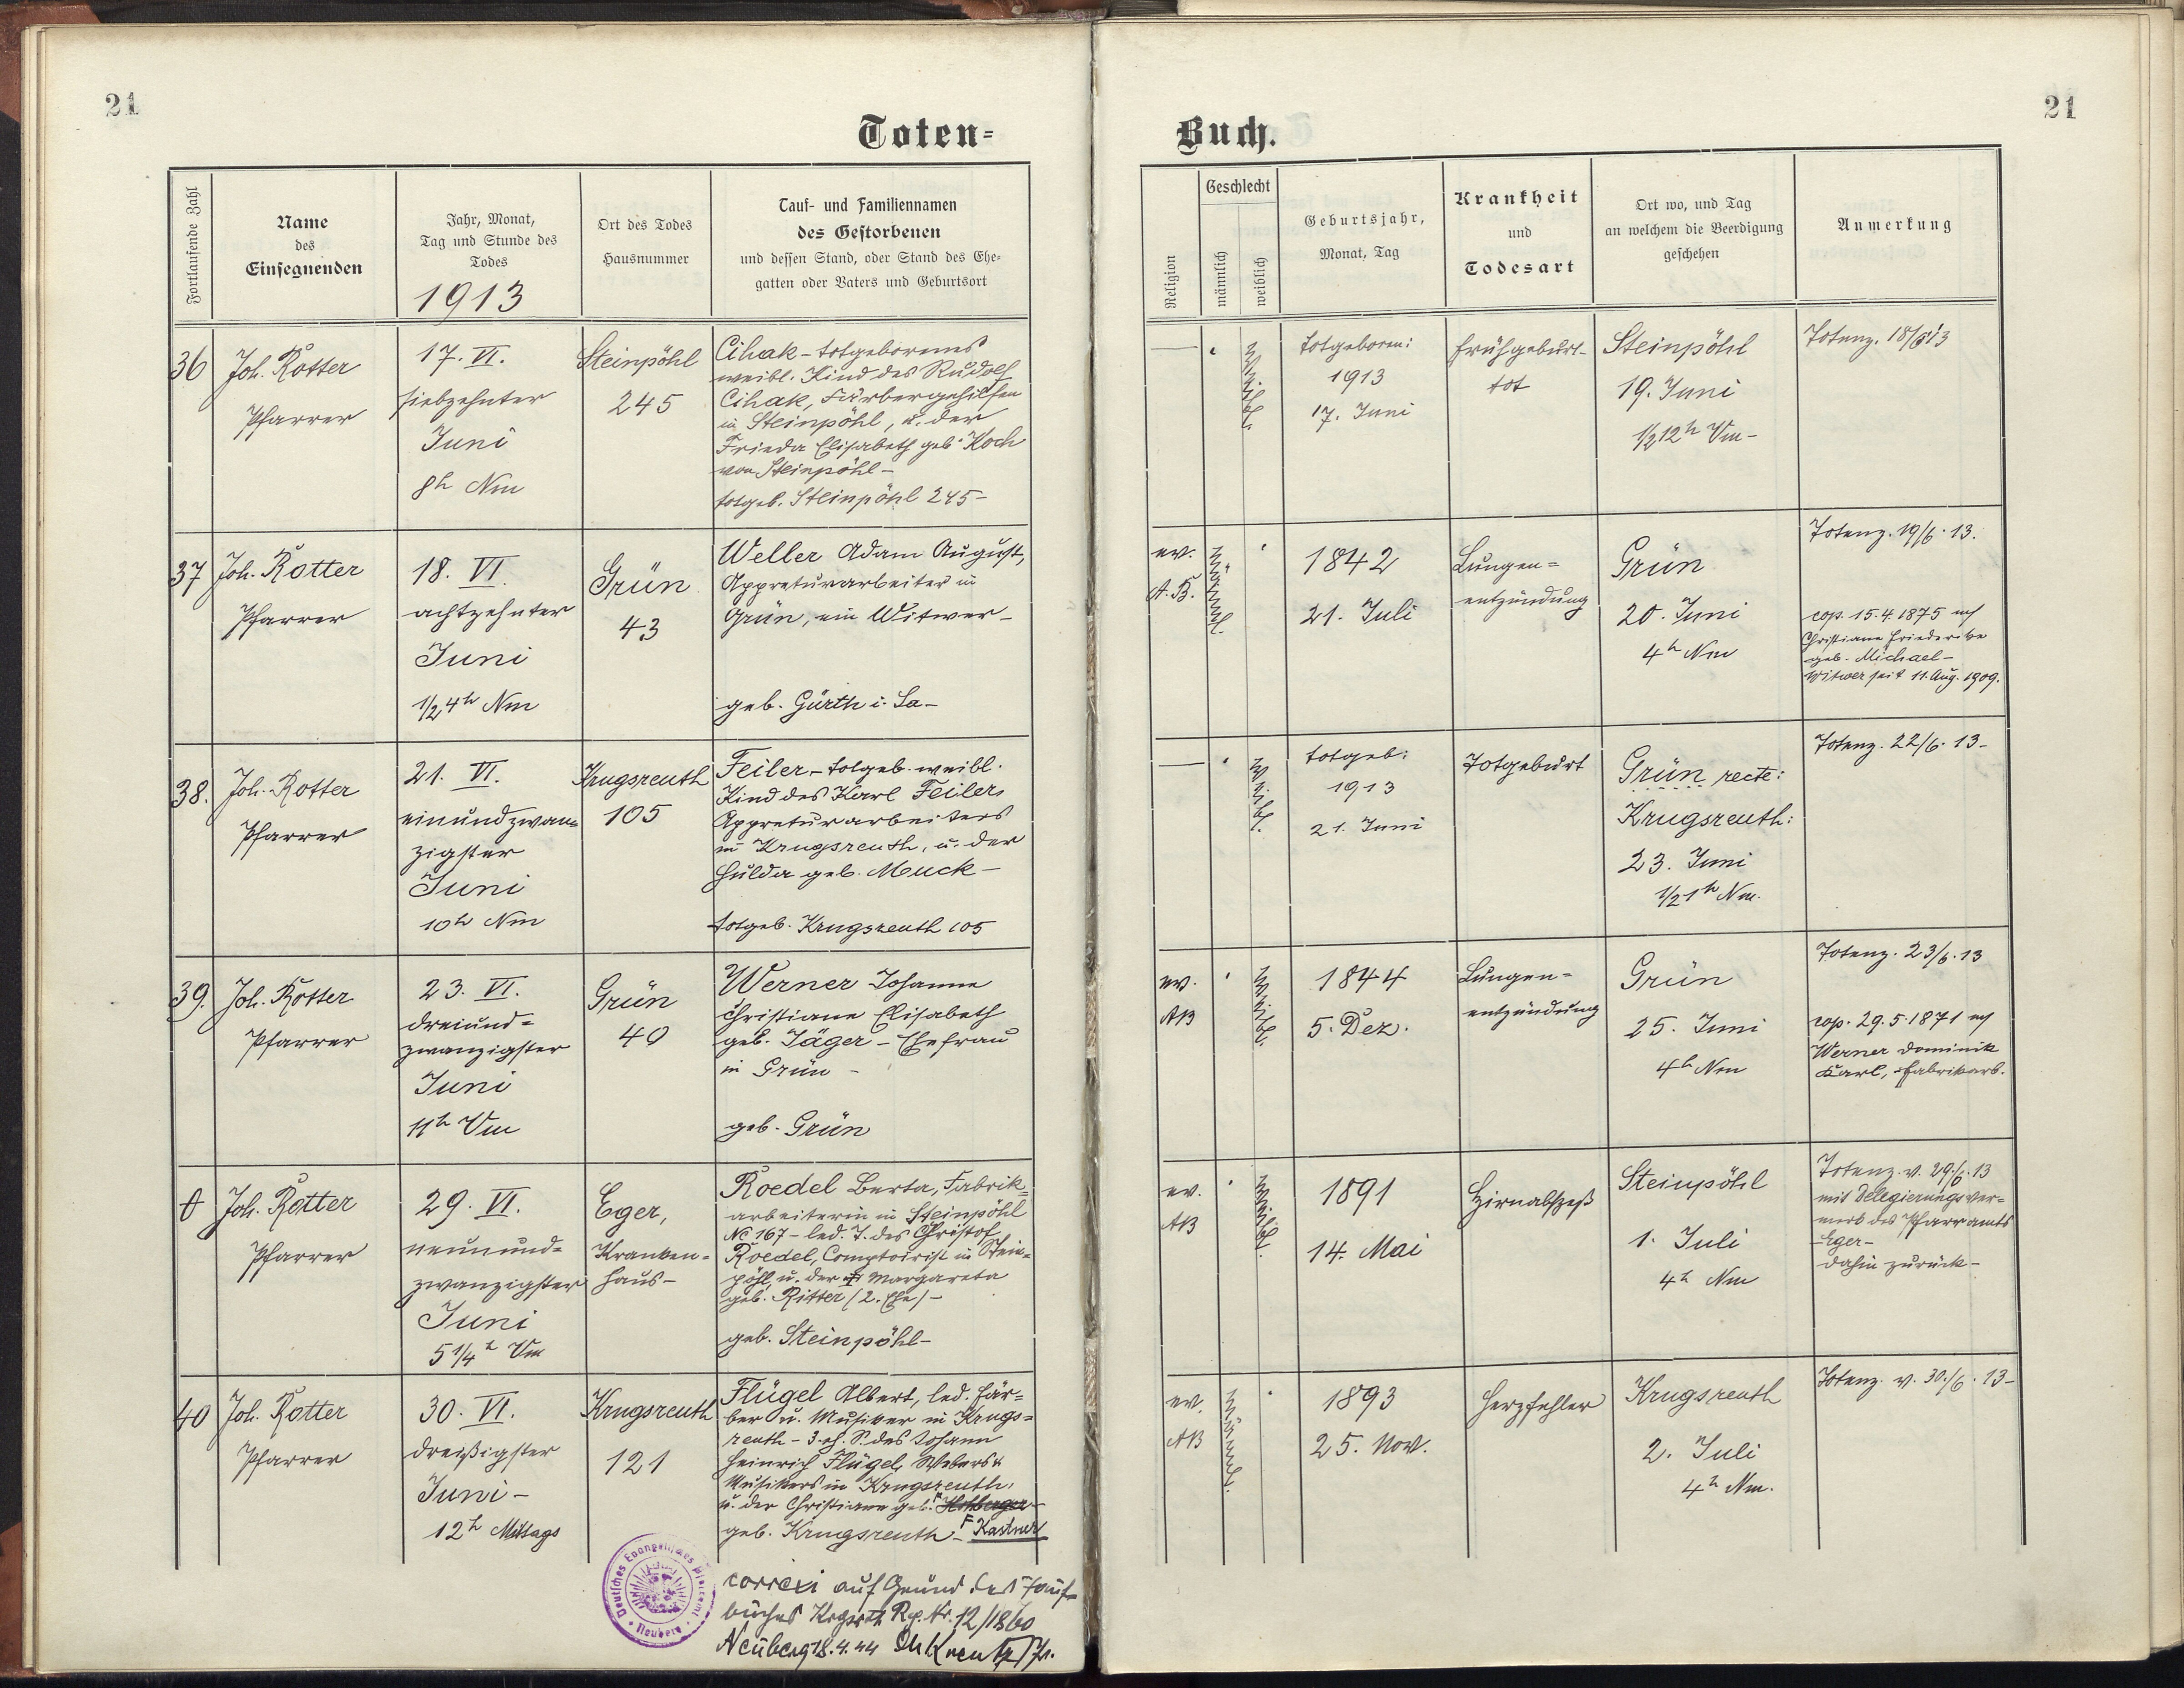 21
Toten-
Fortlaufende Zahl
Name
des
Einsegnenden
Jahr, Monat,
Tag und Stunde des
Todes
1913
Ort des Todes
Hausnummer
Tauf- und Familiennamen
des Gestorbenen
und dessen Stand, oder Stand des Ehe-
gatten oder Vaters und Geburtsort
36
Joh. Rotter
Pfarrer
17. VI.
siebzehnter
Juni
8h Nm
Steinpöhl
245
Cihak - totgeborenes
weibl. Kind des Rudolf
Cihak, Färbergehilfen
in Steinpöhl, u. der
Frieda Elisabeth geb. Koch
von Steinpöhl -
totgeb. Steinpöhl 245 -
37
Joh. Rotter
Pfarrer
18. VI.
achtzehnter
Juni
1/2 4h Nm
Grün
43
Weller Adam August,
Appreturarbeiter in
Grün, ein Witwer -
geb. Gürth i. Sa -
38.
Joh. Rotter
Pfarrer
21. VI.
einundzwan=
zigster
Juni
10h Nm
Krugsreuth
105
Feiler - totgeb. weibl.
Kind des Karl Feiler,
Appreturarbeiters
in Krugsreuth, u. der
Hulda geb. Muck -
totgeb. Krugsreuth 105
39.
Joh. Rotter
Pfarrer
23. VI.
dreiund=
zwanzigster
Juni
11h Vm
Grün
40
Werner Johanne
Christiane Elisabeth
geb. Jäger - Ehefrau
in Grün -
geb. Grün
0
Joh. Rotter
Pfarrer
29. VI.
neunund=
zwanzigster
Juni
5 1/4h Vm
Eger,
Kranken=
haus -
Roedel Berta, Fabrik=
arbeiterin in Steinpöhl
No 167 - led. T. des Christof
Roedel, Comptoirist in Stein=
pöhl, u. der Margareta
geb. Ritter / 2. Ehe / -
geb. Steinpöhl -
40
Joh. Rotter
Pfarrer
30. VI.
dreißigster
Juni -
12h Mittags
Krugsreuth
121
Flügel Albert, led. Fär=
ber u. Musiker in Krugs=
reuth - 3. eh. S. des Johann
Heinrich Flügel, Webers u
Musikers in Krugsreuth,
u. der Christiane geb.
geb. Krugsreuth - F Kastner
Deutsches Evangelisches Pfarramt
Neuberg
correxi auf Grund des Tauf-
buches Krgsrth Rg. Nr. 12/1860
Neuberg 18.4.44
21
Buch.
Religion
Geschlecht
männlich
weiblich
Geburtsjahr,
Monat, Tag
Krankheit
und
Todesart
Ort wo, und Tag
an welchem die Beerdigung
geschehen
Anmerkung
weibl.
totgeboren:
1913
17. Juni
Frühgeburt -
tot
Steinpöhl
19. Juni
1/2 12h Vm -
Totenz. 18/6 13
ev.
A. B.
männl.
1842
21. Juli
Lungen=
entzündung
Grün
20. Juni
4h Nm
Totenz. 19/6. 13.
cop. 15.4.1875 m/
Christiane Friederike
geb. Michael -
Witwer seit 11. Aug. 1909.
weibl.
totgeb:
1913
21. Juni
Totgeburt
Grün recte:
Krugsreuth:
23. Juni
1/2 1h Nm.
Totenz. 22/6. 13 -
ev.
AB
weibl.
1844
5. Dez.
Lungen=
entzündung
Grün
25. Juni
4h Nm
Totenz. 23/6. 13
cop. 29.5.1871 m/
Werner Dominik
Karl, Fabrikarb.
ev.
AB
weibl.
1891
14. Mai
Hirnabszeß
Steinpöhl
1. Juli
4h Nm
Totenz. v. 29/6. 13
mit Delegierungsver=
merk des Pfarramts
Eger -
dahin zurück -
ev.
AB
männl.
1893
25. Nov.
Herzfehler
Krugsreuth
2. Juli
4h Nm.
Totenz. v. 30./6. 13 -